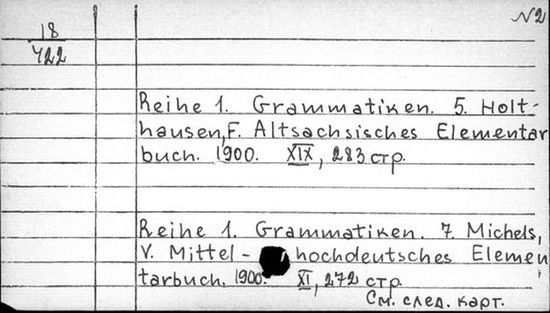 N2
18
422
Reihe 1. Grammatiken. 5. Holt-
hausen, F. Altsachsisches Elementar
buch. 1900. XIX, 283 стр.
Reihe 1. Grammatiken. 7. Michels,
V. Mittel- hochdeutsches Elemen
tarbuch. 1900. XI, 272 стр.
См. след. карт.